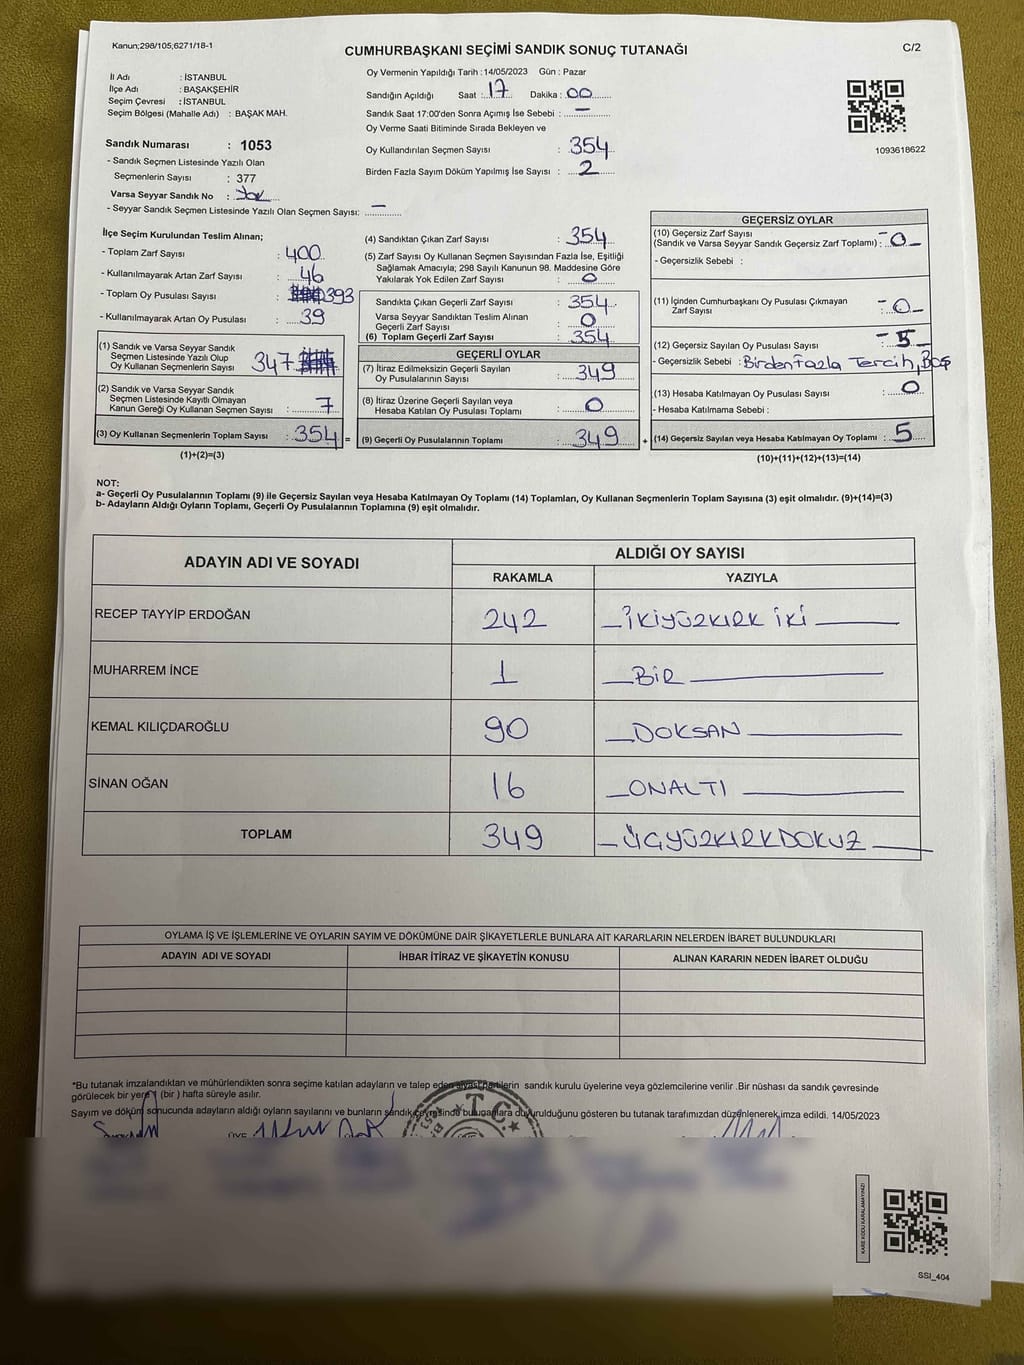 Kanun;298/105,6271/18-1
CUMHURBAŞKANI SEÇİMİ SANDIK SONUÇ TUTANAĞI
C/2
İl Adı : İSTANBUL
İlçe Adı : BAŞAKŞEHİR
Seçim Çevresi : İSTANBUL
Seçim Bölgesi (Mahalle Adı) : BAŞAK MAH.
Sandık Numarası : 1053
- Sandık Seçmen Listesinde Yazılı Olan
Seçmenlerin Sayısı : 377
Varsa Seyyar Sandık No : Yok
- Seyyar Sandık Seçmen Listesinde Yazılı Olan Seçmen Sayısı: —
Oy Vermenin Yapıldığı Tarih : 14/05/2023 Gün : Pazar
Sandığın Açıldığı Saat : 17 Dakika : 00
Sandık Saat 17:00'den Sonra Açımış İse Sebebi : —
Oy Verme Saati Bitiminde Sırada Bekleyen ve
Oy Kullandırılan Seçmen Sayısı : 354
Birden Fazla Sayım Döküm Yapılmış İse Sayısı : 2
1093618622
İlçe Seçim Kurulundan Teslim Alınan;
- Toplam Zarf Sayısı : 400
- Kullanılmayarak Artan Zarf Sayısı : 46
- Toplam Oy Pusulası Sayısı : 393
- Kullanılmayarak Artan Oy Pusulası : 39
(1) Sandık ve Varsa Seyyar Sandık
Seçmen Listesinde Yazılı Olup
Oy Kullanan Seçmenlerin Sayısı 347
(2) Sandık ve Varsa Seyyar Sandık
Seçmen Listesinde Kayıtlı Olmayan
Kanun Gereği Oy Kullanan Seçmen Sayısı : 7
(3) Oy Kullanan Seçmenlerin Toplam Sayısı : 354 =
(1)+(2)=(3)
(4) Sandıktan Çıkan Zarf Sayısı : 354
(5) Zarf Sayısı Oy Kullanan Seçmen Sayısından Fazla İse, Eşitliği
Sağlamak Amacıyla; 298 Sayılı Kanunun 98. Maddesine Göre
Yakılarak Yok Edilen Zarf Sayısı : 0
Sandıkta Çıkan Geçerli Zarf Sayısı : 354
Varsa Seyyar Sandıktan Teslim Alınan
Geçerli Zarf Sayısı : 0
(6) Toplam Geçerli Zarf Sayısı : 354
GEÇERLİ OYLAR
(7) İtiraz Edilmeksizin Geçerli Sayılan
Oy Pusulalarının Sayısı : 349
(8) İtiraz Üzerine Geçerli Sayılan veya
Hesaba Katılan Oy Pusulası Toplamı : 0
(9) Geçerli Oy Pusulalarının Toplamı : 349 +
GEÇERSİZ OYLAR
(10) Geçersiz Zarf Sayısı
(Sandık ve Varsa Seyyar Sandık Geçersiz Zarf Toplamı) : -0-
- Geçersizlik Sebebi :
(11) İçinden Cumhurbaşkanı Oy Pusulası Çıkmayan
Zarf Sayısı : -0-
(12) Geçersiz Sayılan Oy Pusulası Sayısı : -5-
- Geçersizlik Sebebi : Birden Fazla Tercih, Boş
(13) Hesaba Katılmayan Oy Pusulası Sayısı : 0
- Hesaba Katılmama Sebebi :
(14) Geçersiz Sayılan veya Hesaba Katılmayan Oy Toplamı : 5
(10)+(11)+(12)+(13)=(14)
NOT:
a- Geçerli Oy Pusulalarının Toplamı (9) ile Geçersiz Sayılan veya Hesaba Katılmayan Oy Toplamı (14) Toplamları, Oy Kullanan Seçmenlerin Toplam Sayısına (3) eşit olmalıdır. (9)+(14)=(3)
b- Adayların Aldığı Oyların Toplamı, Geçerli Oy Pusulalarının Toplamına (9) eşit olmalıdır.
ADAYIN ADI VE SOYADI
ALDIĞI OY SAYISI
RAKAMLA YAZIYLA
RECEP TAYYİP ERDOĞAN 242 İKİYÜZKIRK İKİ
MUHARREM İNCE 1 BİR
KEMAL KILIÇDAROĞLU 90 DOKSAN
SİNAN OĞAN 16 ONALTI
TOPLAM 349 ÜÇYÜZKIRKDOKUZ
OYLAMA İŞ VE İŞLEMLERİNE VE OYLARIN SAYIM VE DÖKÜMÜNE DAİR ŞİKAYETLERLE BUNLARA AİT KARARLARIN NELERDEN İBARET BULUNDUKLARI
ADAYIN ADI VE SOYADI İHBAR İTİRAZ VE ŞİKAYETİN KONUSU ALINAN KARARIN NEDEN İBARET OLDUĞU
*Bu tutanak imzalandıktan ve mühürlendikten sonra seçime katılan adayların ve talep eden siyasi partilerin sandık kurulu üyelerine veya gözlemcilerine verilir .Bir nüshası da sandık çevresinde
görülecek bir yere 1 (bir ) hafta süreyle asılır.
Sayım ve döküm sonucunda adayların aldığı oyların sayılarını ve bunların sandık çevresinde bulunanlara duyurulduğunu gösteren bu tutanak tarafımızdan düzenlenerek imza edildi. 14/05/2023
T.C.
ÜYE
KARE KODU KARALAMAYINIZ!
SSI_404